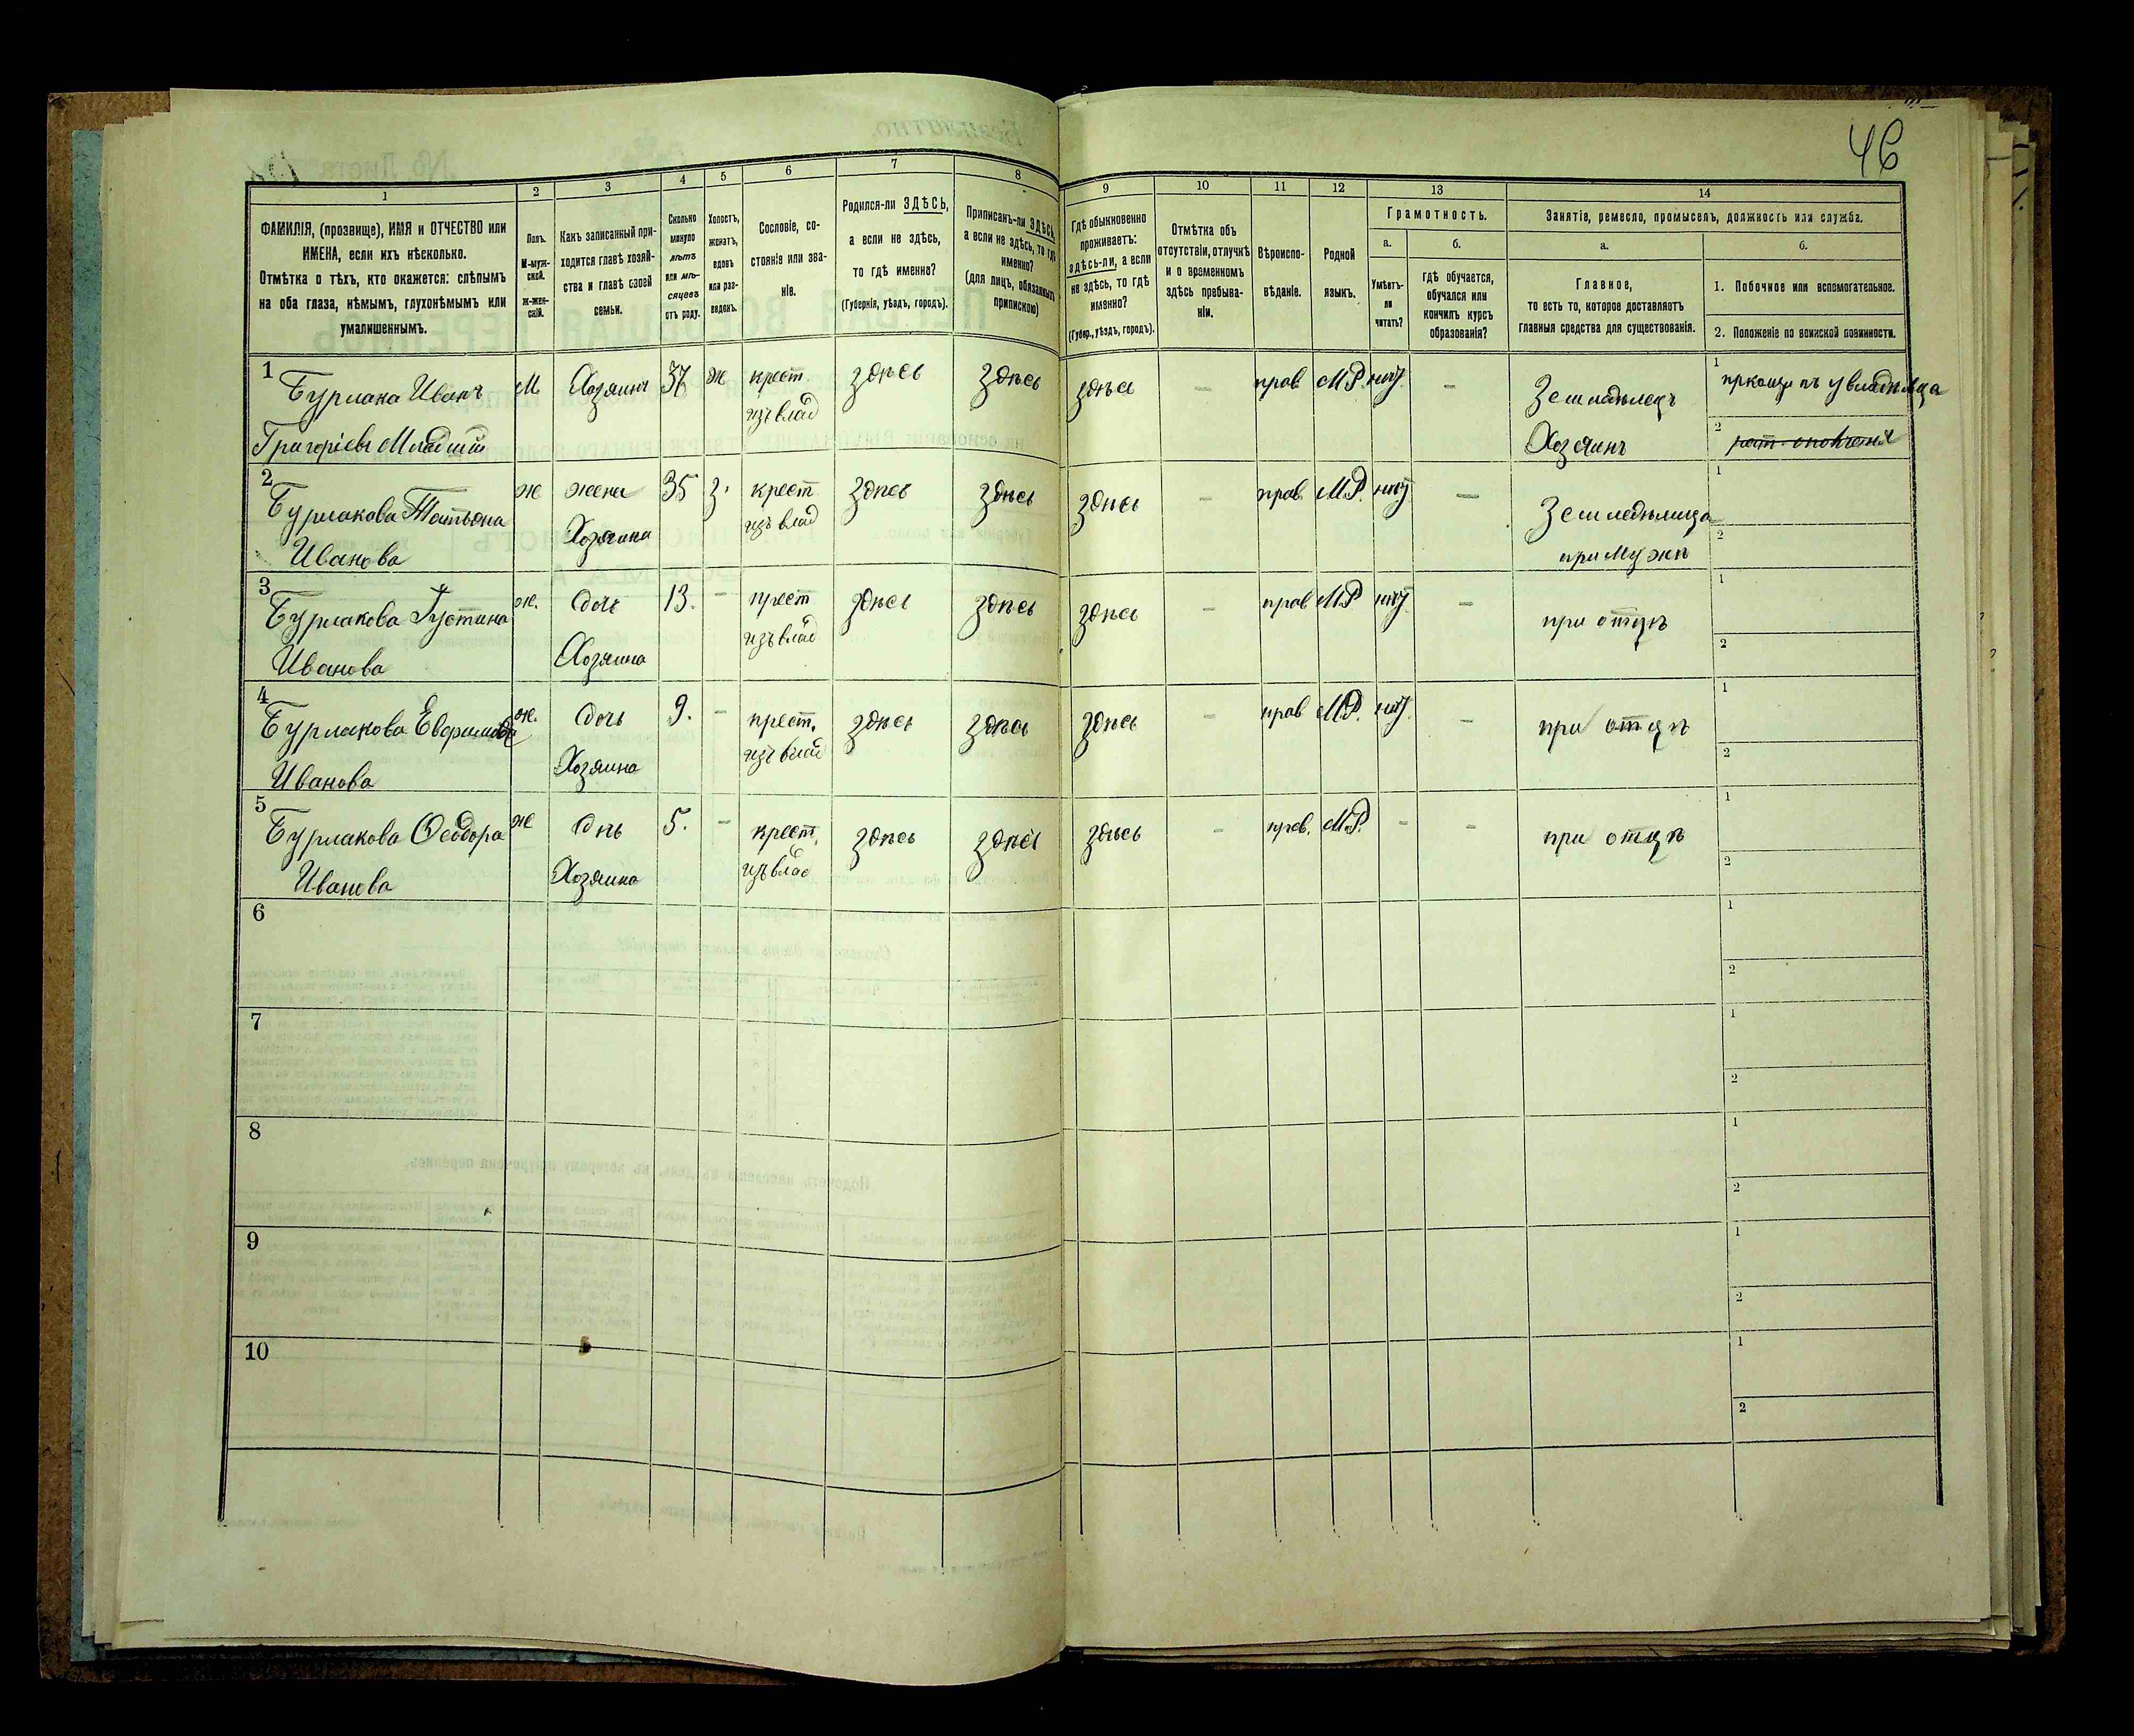 46
1 2 3 4 5 6 7 8 9 10 11 12 13 14
ФАМИЛІЯ, (прозвище), ИМЯ и ОТЧЕСТВО или
ИМЕНА, если ихъ нѣсколько.
Отмѣтка о тѣхъ, кто окажется: слѣпымъ
на оба глаза, нѣмымъ, глухонѣмымъ или
умалишеннымъ.
Полъ.
М-муж-
ской.
ж-жен-
скій.
Какъ записанный при-
ходится главѣ хозяй-
ства и главѣ своей
семьи.
Сколько
минуло
лѣтъ
или мѣ-
сяцевъ
отъ роду.
Холостъ,
женатъ,
вдовъ
или раз-
веденъ.
Сословіе, со-
стояніе или зва-
ніе.
Родился-ли ЗДѢСЬ,
а если не здѣсь,
то гдѣ именно?
(Губернія, уѣздъ, городъ).
Приписанъ-ли ЗДѢСЬ,
а если не здѣсь, то гдѣ
именно?
(для лицъ, обязанныхъ
припискою)
Гдѣ обыкновенно
проживаетъ:
здѣсь-ли, а если
не здѣсь, то гдѣ
именно?
(Губер., уѣздъ, городъ).
Отмѣтка объ
отсутствіи, отлучкѣ
и о временномъ
здѣсь пребыва-
ніи.
Вѣроиспо-
вѣданіе.
Родной
языкъ.
Грамотность.
а.
Умѣетъ-
ли
читать?
б.
гдѣ обучается,
обучался или
кончилъ курсъ
образованія?
Занятіе, ремесло, промыселъ, должность или служба.
а.
Главное,
то есть то, которое доставляетъ
главныя средства для существованія.
б.
1. Побочное или вспомогательное.
2. Положеніе по воинской повинности.
1 Бурлака Иванъ М Хозяинъ 37 ж крест. здѣсь здѣсь здѣсь - прав М.Р. - Земледѣлецъ 1
изъ влад
Григоріевъ Младшій Хозяинъ 2 рат. ополченія
2 Бурлакова Татьяна ж жена 35 з. крест. здѣсь здѣсь здѣсь - прав. М.Р. - Земледѣлица 1
Хозяина изъ влад
Иванова при мужѣ 2
3 Бурлакова Іустина ж. дочь 13. - крест здѣсь здѣсь здѣсь - прав М.Р. - при отцѣ 1
Хозяина изъ влад
Иванова 2
4 Бурлакова ж. дочь 9. - крест. здѣсь здѣсь здѣсь - прав М.Р. - при отцѣ 1
Хозяина изъ влад
Иванова 2
5 Бурлакова Ѳеодора ж 5. - крест. здѣсь здѣсь здѣсь - прав. М.Р. - - при отцѣ 1
Хозяина изъ влад
Иванова 2
6 1
2
7 1
2
8 1
2
9 1
2
10 1
2